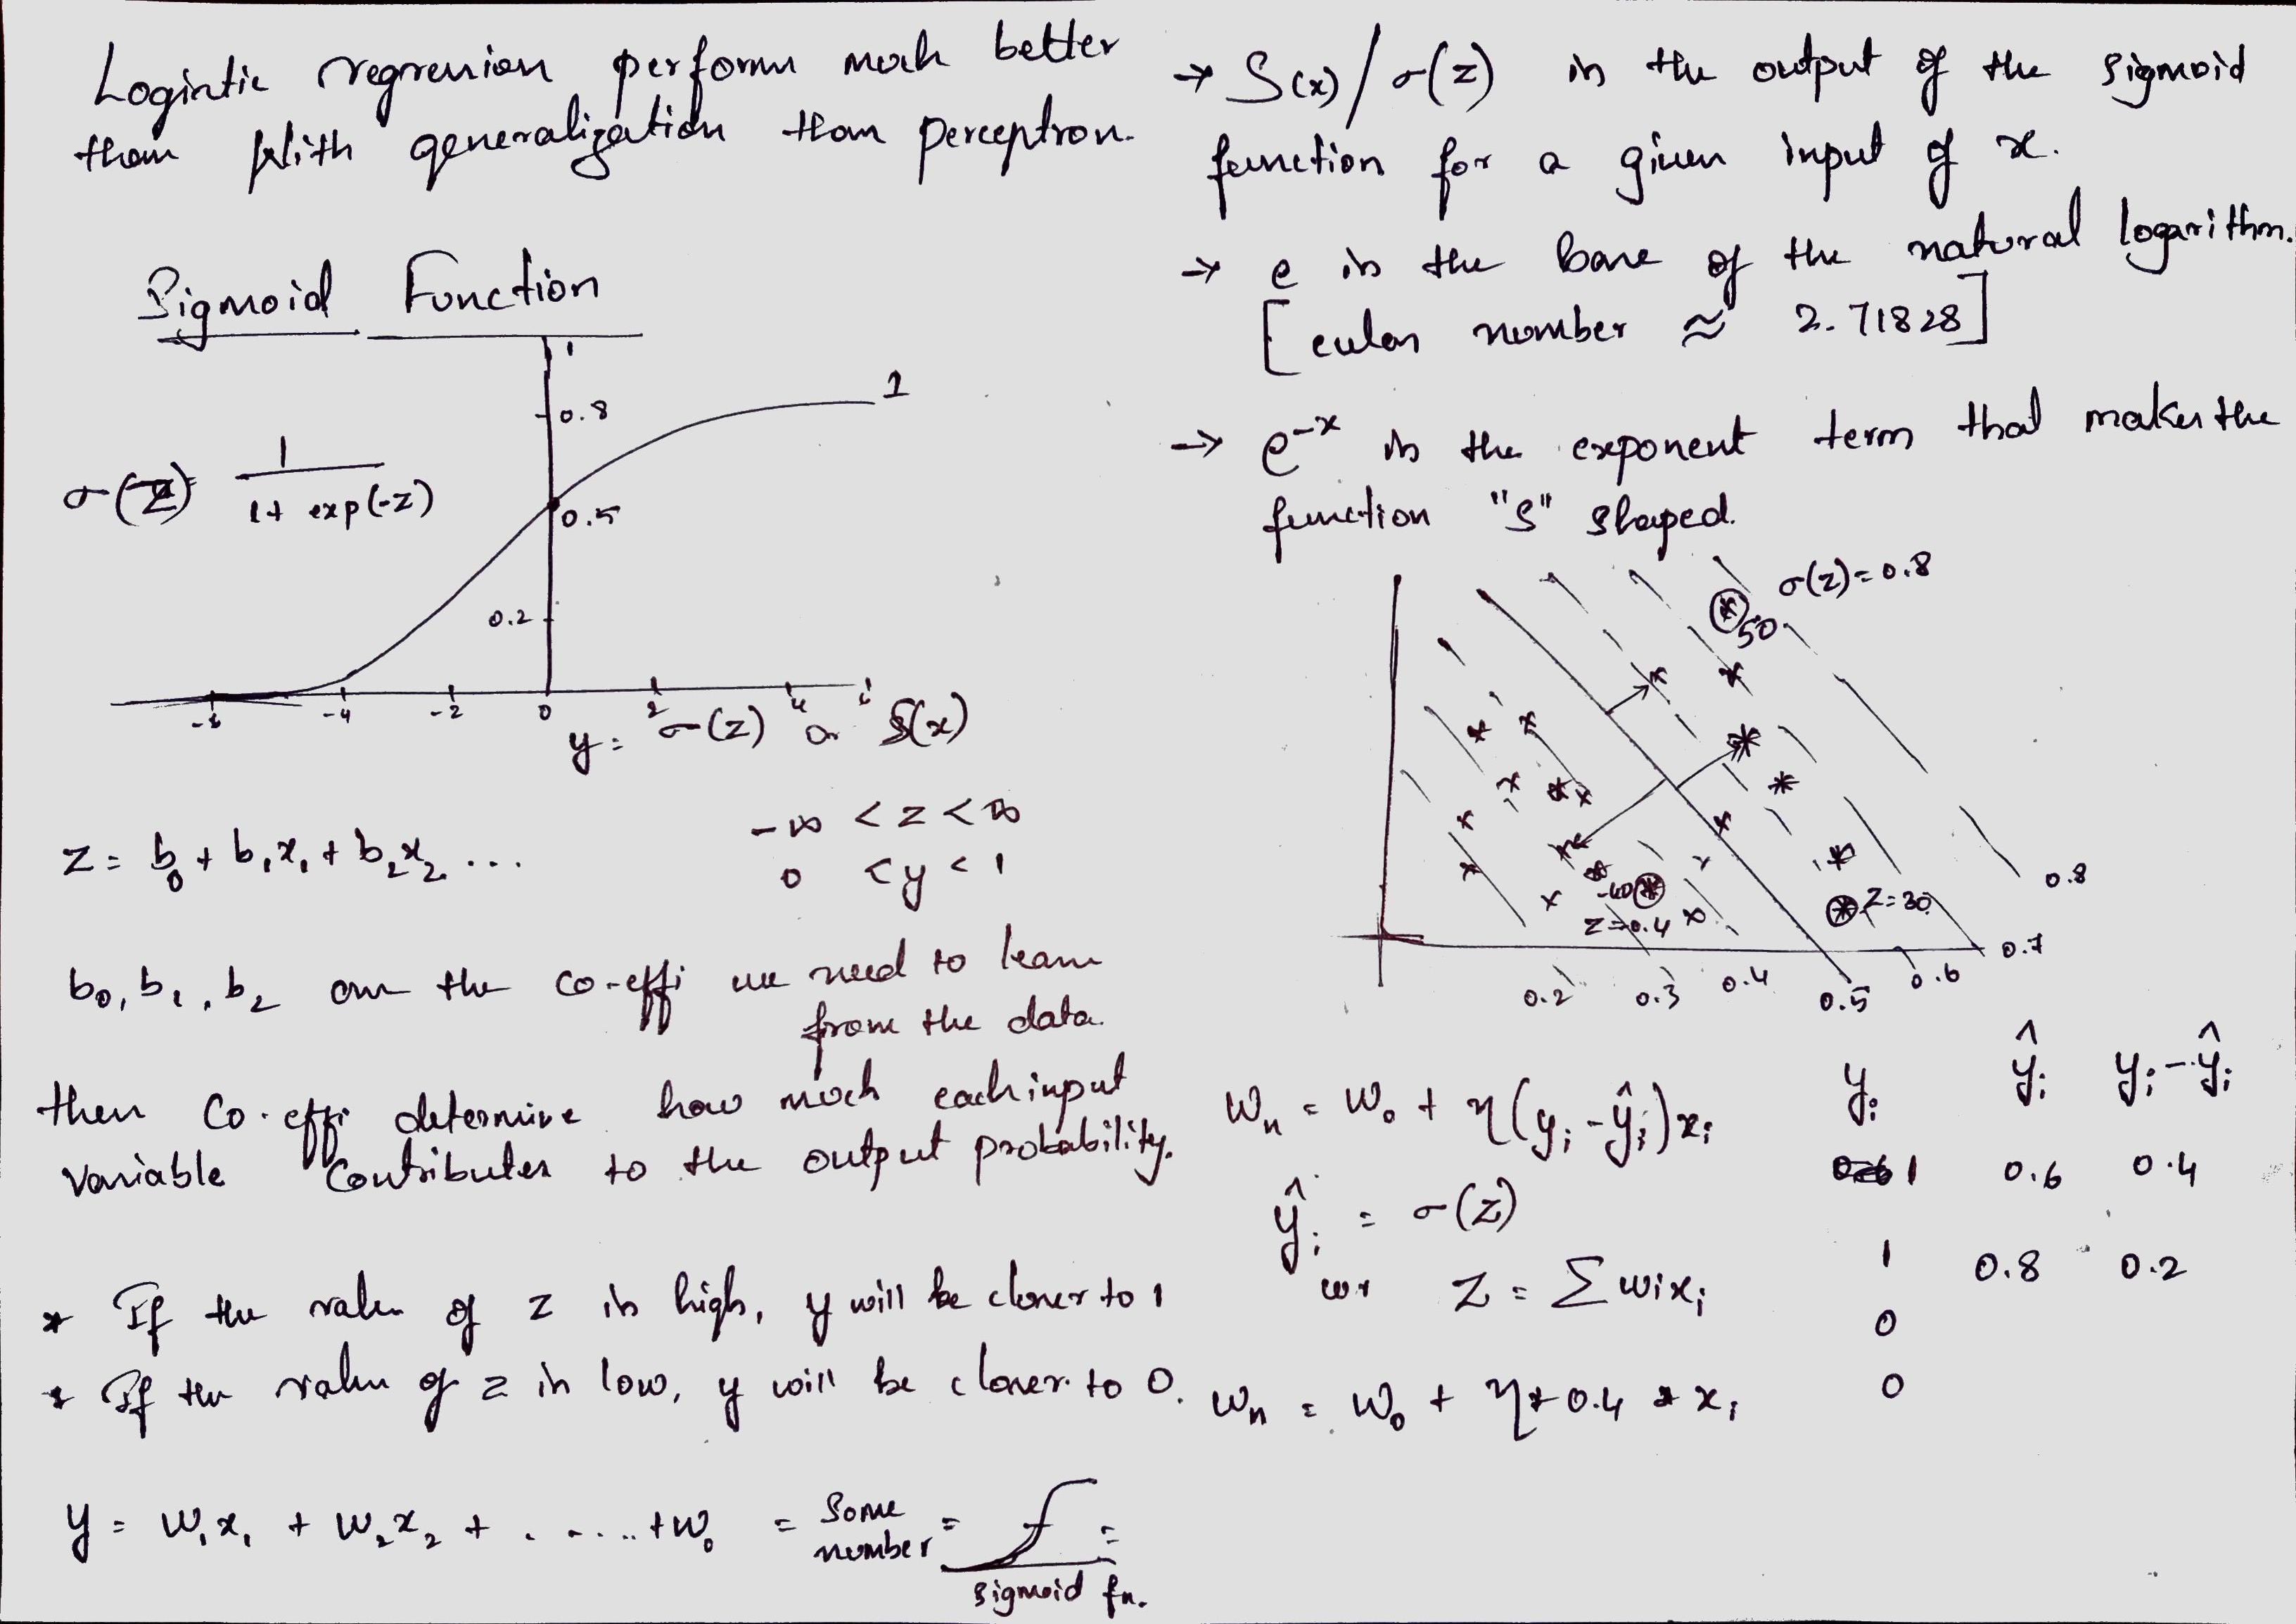 Logistic regression performs much better
than with generalization than perceptron.
Sigmoid Function
1
0.8
1
σ(z) = 1 / 1 + exp(-z)
0.5
0.2
-4 -2 0 2 4
y = σ(z) or S(x)
-∞ < z < ∞
z = b0 + b1x1 + b2x2 ...
0 < y < 1
b0, b1, b2 are the co-effi we need to learn
from the data.
then co-effi determine how much each input
variable contributes to the output probability.
* If the value of z is high, y will be closer to 1
* If the value of z is low, y will be closer to 0.
y = w1x1 + w2x2 + ...... + w0 = Some number = =
Sigmoid fn.
→ S(x) / σ(z) is the output of the sigmoid
function for a given input of x.
→ e is the base of the natural logarithm.
[euler number ≈ 2.71828]
→ e^-x is the exponent term that makes the
function "S" shaped.
σ(z) = 0.8
50
0.8
-40
z = 30
z = 0.4
0.7
0.2 0.3 0.4 0.5 0.6
wn = w0 + η(yi - ŷi)xi
yi ŷi yi - ŷi
1 0.6 0.4
ŷi = σ(z)
1 0.8 0.2
z = Σ wixi
0
0
wn = w0 + η * 0.4 * xi